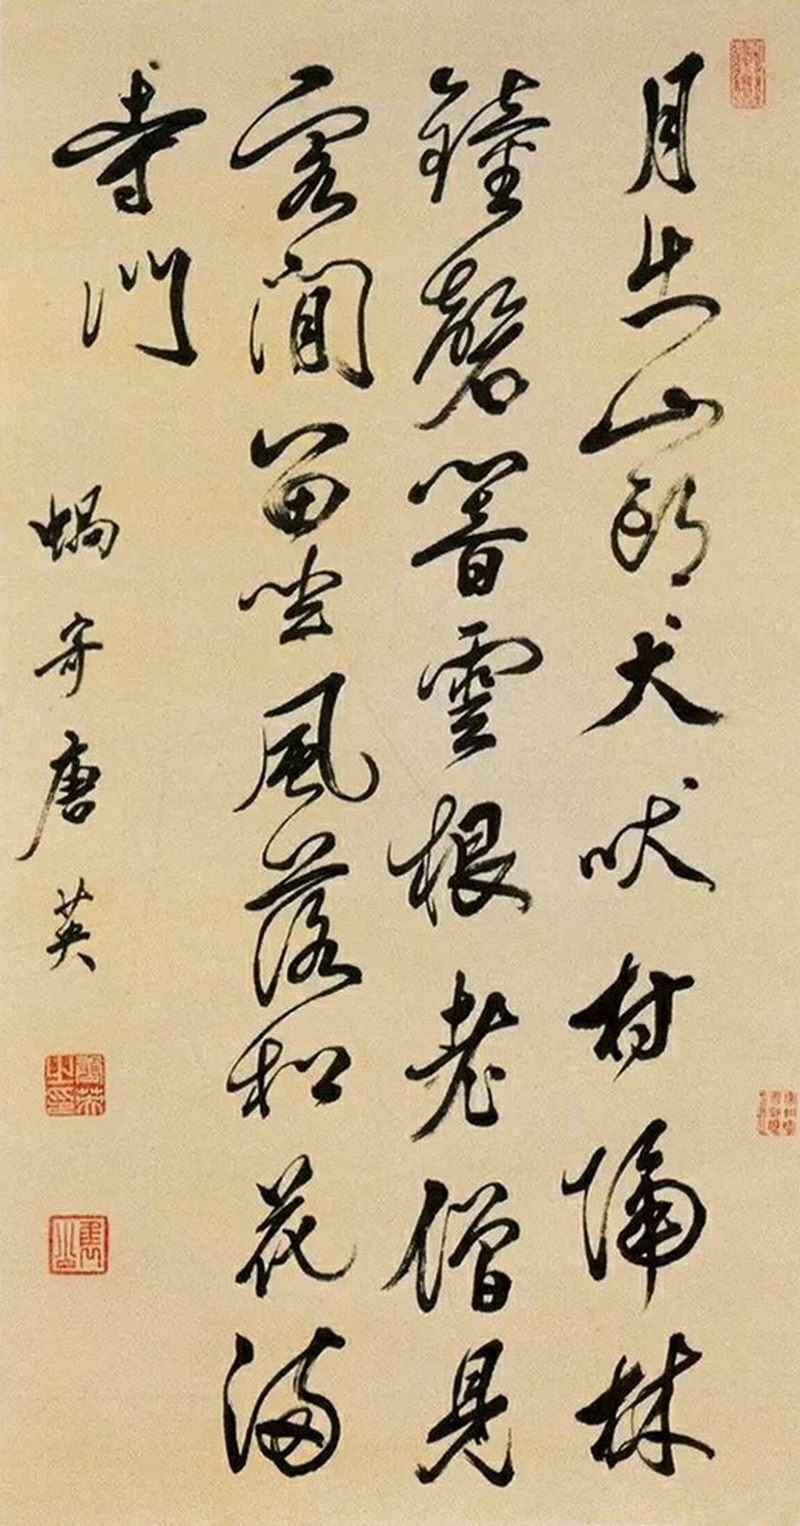 月出山頭犬吠村隔林
鐘磬響雲根老僧見
客閒留坐風落松花滿
寺門
蝸寄唐英